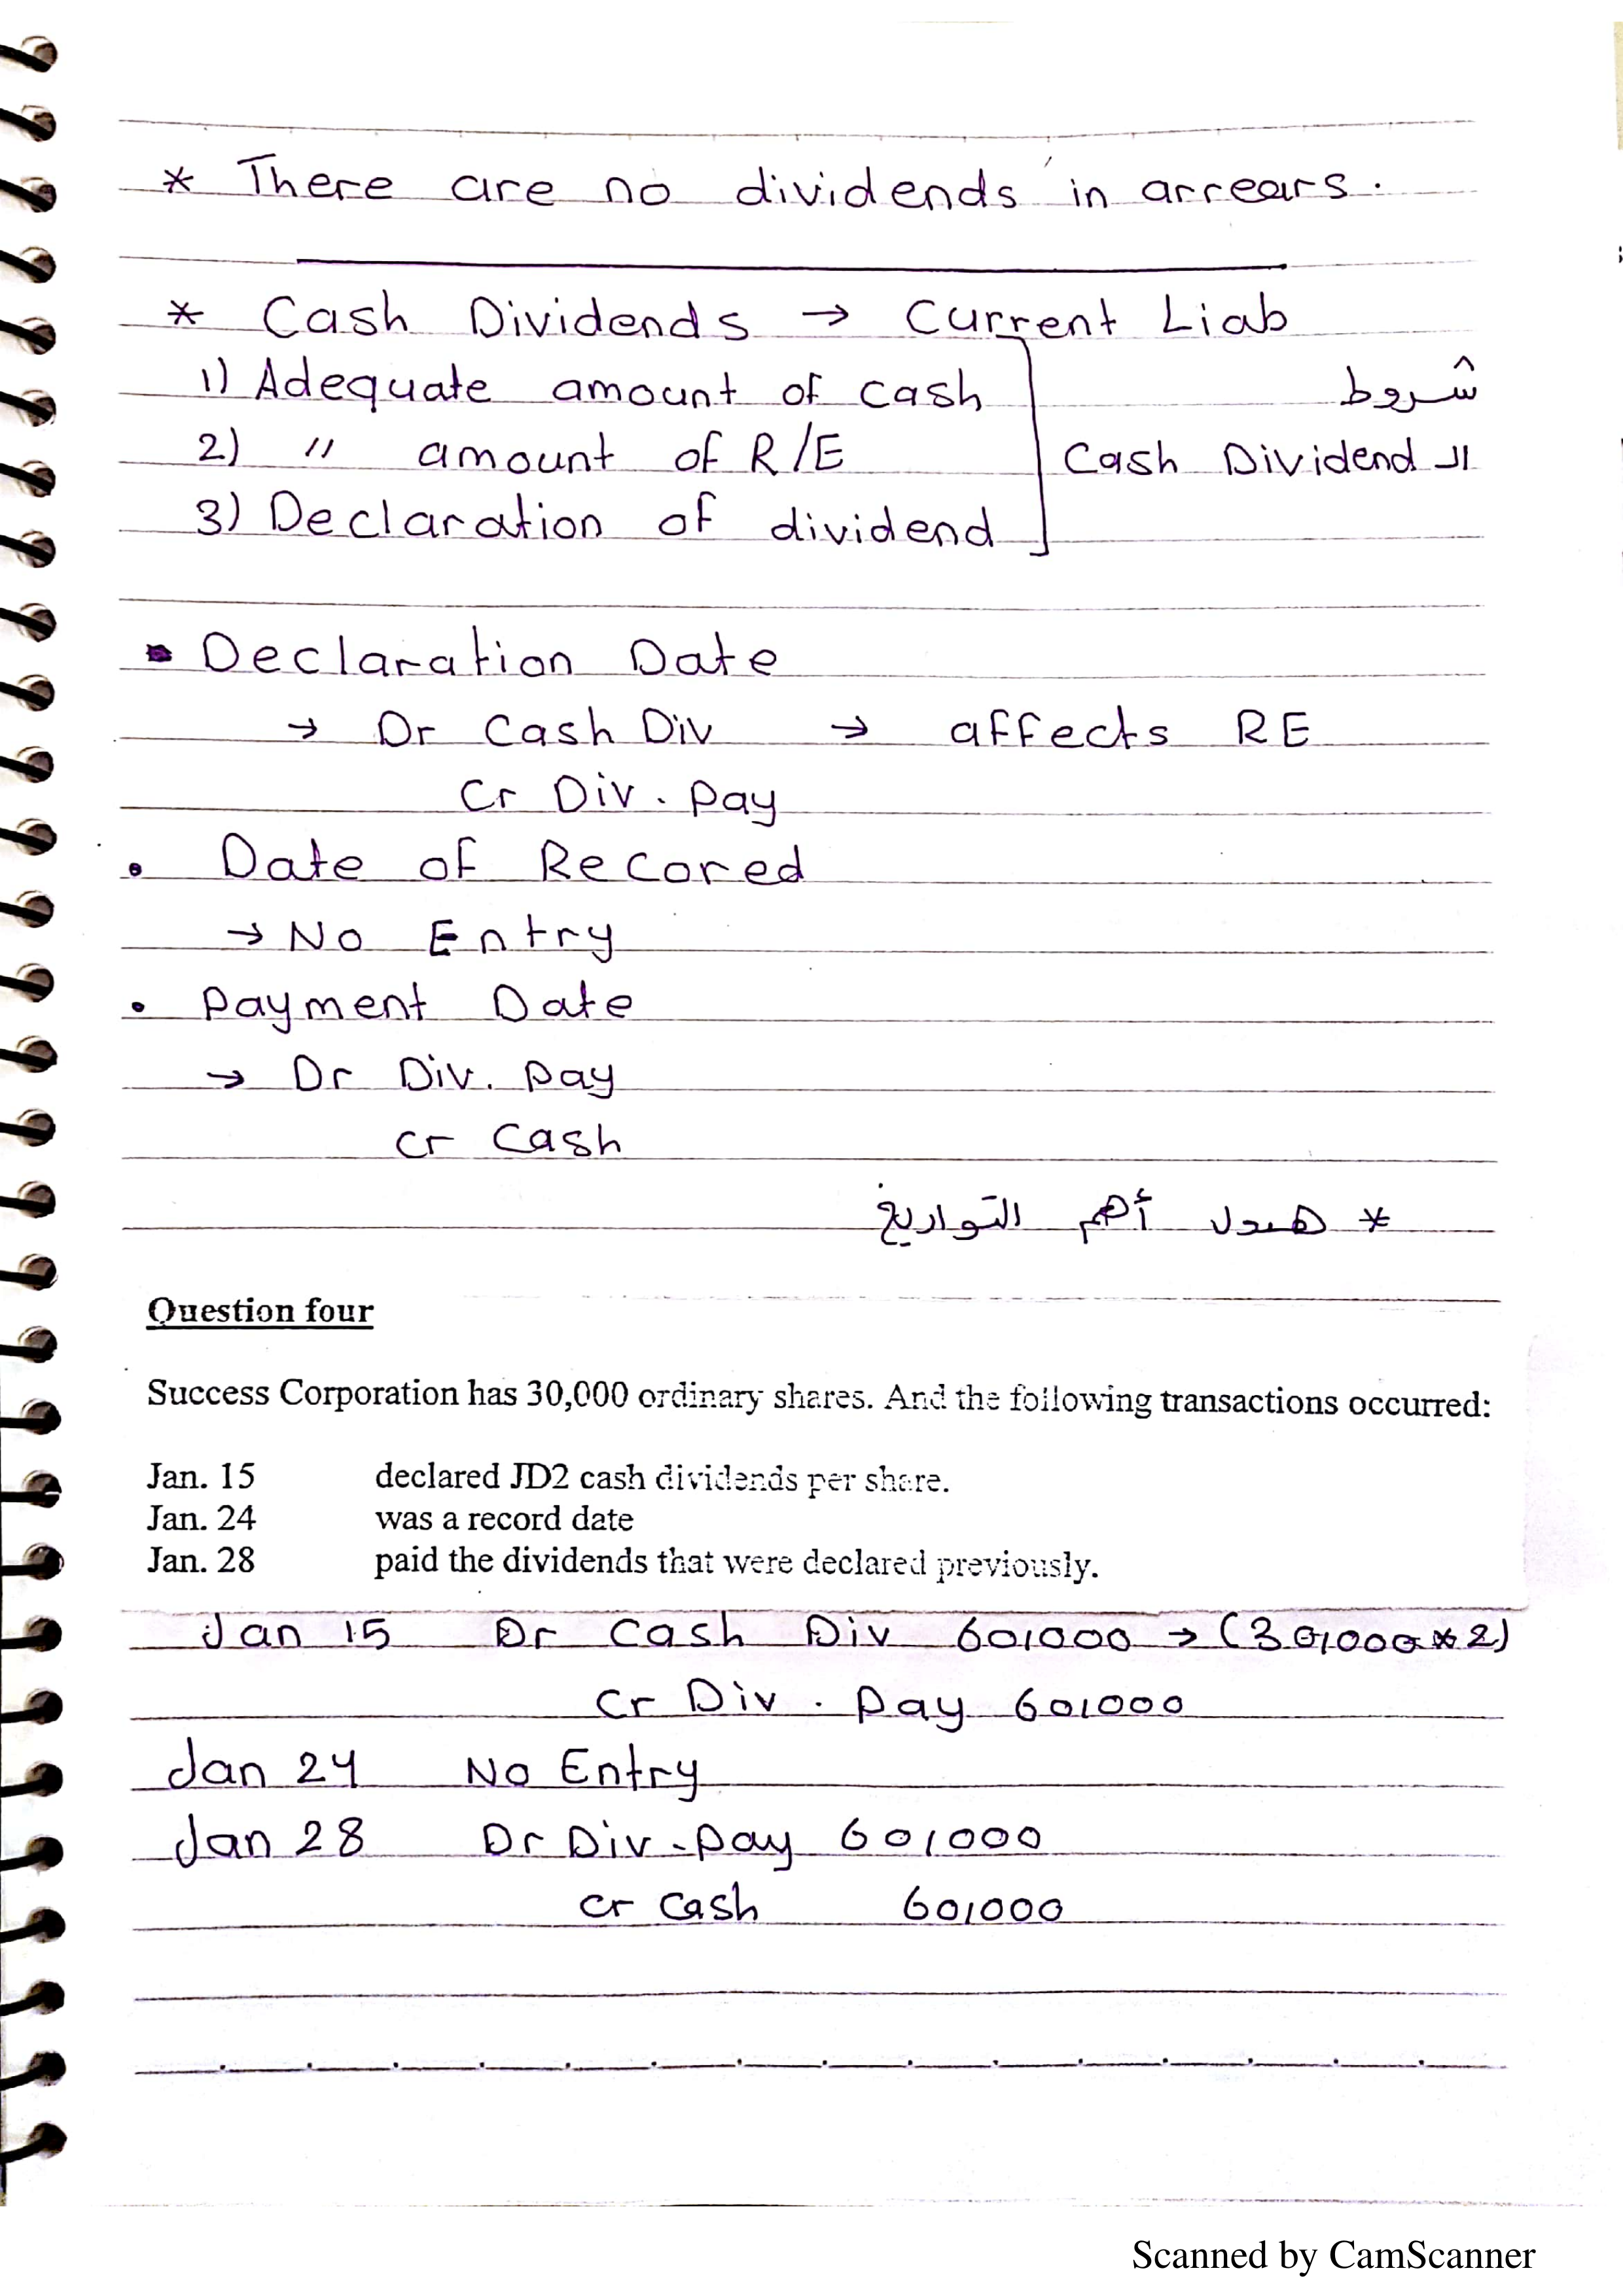 * There are no dividends in arrears.
* Cash Dividends → Current Liab
1) Adequate amount of cash
شروط
2) " amount of R/E
الـ Cash Dividend
3) Declaration of dividend
▪ Declaration Date
→ Dr Cash Div → affects RE
Cr Div. pay
• Date of Recored
→ No Entry
• Payment Date
→ Dr Div. pay
cr Cash
* هدول أهم التواريخ
Question four
Success Corporation has 30,000 ordinary shares. And the following transactions occurred:
Jan. 15 declared JD2 cash dividends per share.
Jan. 24 was a record date
Jan. 28 paid the dividends that were declared previously.
Jan 15 Dr Cash Div 60,000 → (30,000*2)
Cr Div. pay 60,000
Jan 24 No Entry
Jan 28 Dr Div. pay 60,000
cr cash 60,000
Scanned by CamScanner